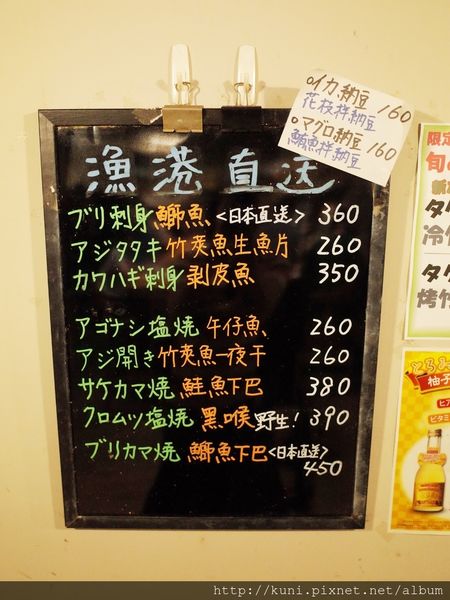 oイカ納豆 160
花枝拌納豆
oマグロ納豆 160
鮪魚拌納豆
漁港直送
ブリ刺身 鰤魚 <日本直送> 360
アジタタキ 竹莢魚生魚片 260
カワハギ刺身 剥皮魚 350
アゴナシ塩焼 午仔魚 260
アジ開き 竹莢魚一夜干 260
サケカマ焼 鮭魚下巴 380
クロムツ塩焼 黑喉 野生! 390
ブリカマ焼 鰤魚下巴 <日本直送>
450
限定
旬の
タケ
冷竹
タケ
烤竹
とろみ
柚子
ビタミ
http://kuni.pixnet.net/album